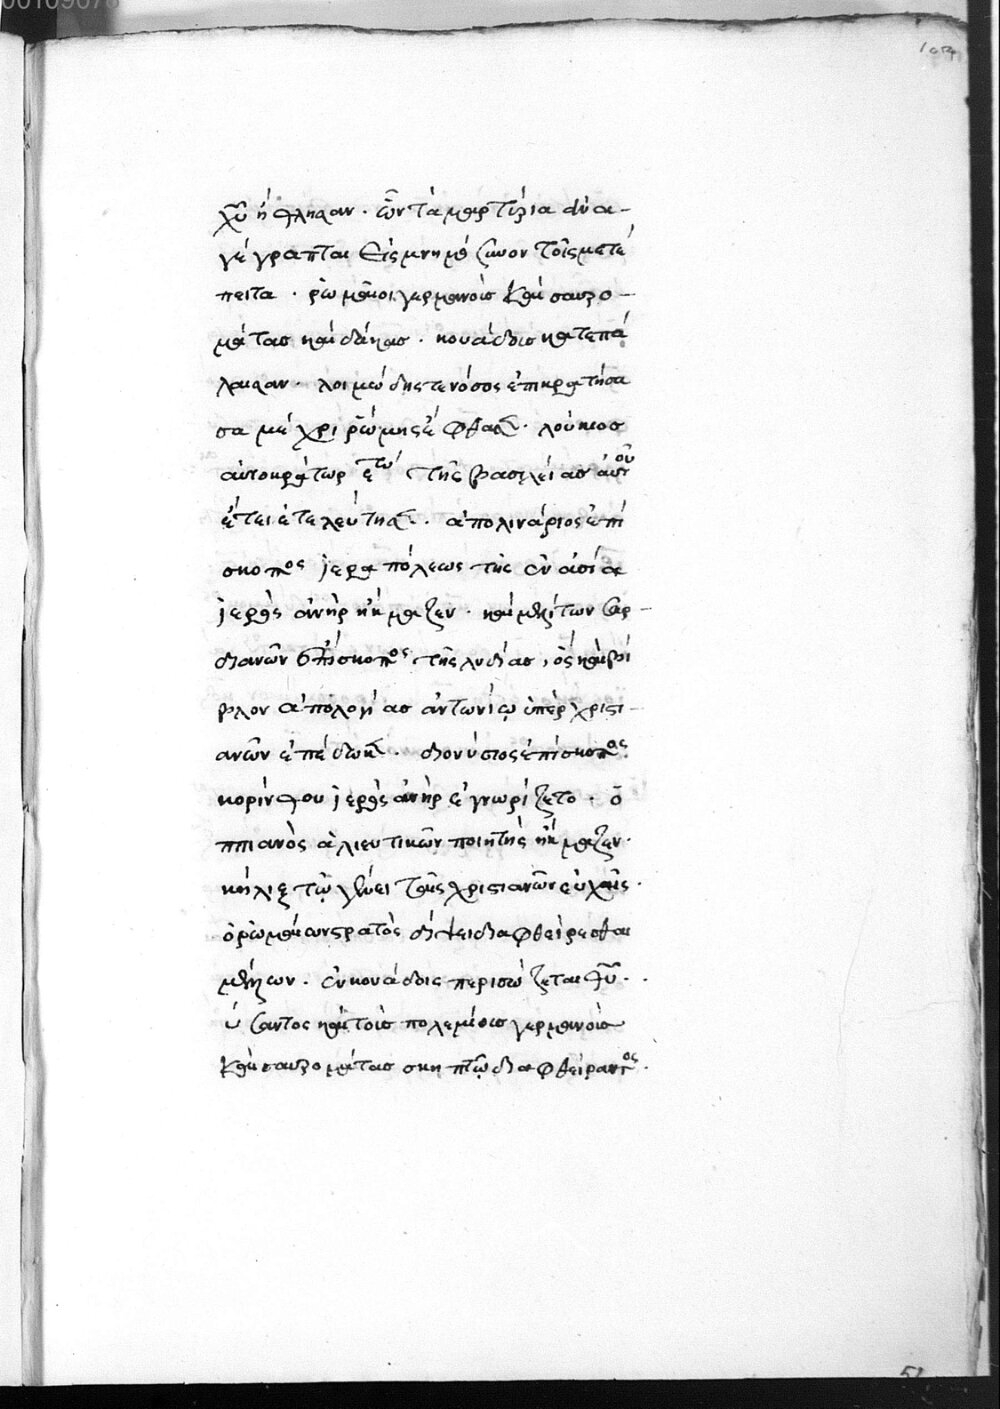 00109078
104
χυ ἤθλησαν · ὧν τὰ μαρτύρια ἀνα-
γέγραπται εἰς μνημόσυνον τοῖς μετέ
πειτα · ῥωμαῖοι γερμανοὺς καὶ σαυρο-
μάτας καὶ δάκας · κουάδους κατεπά
λαισαν · λοιμώδης τε νόσος ἐπικρατήσα
σα μέχρι ῥώμης ἔφθασεν · λούκιος
αὐτοκράτωρ ἐτω τῆς βασιλείας αὐτοῦ
ἔτει ἐτελεύτησεν · ἀπολινάριος ἐπί
σκοπος ἱεραπόλεως τῆς ἐν ἀσία
ἱερὸς ἀνὴρ ἤκμαζεν · καὶ μελίτων σαρ-
διανῶν ἐπίσκοπος τῆς λυδίας, ὃς καὶ βί
βλον ἀπολογίας ἀντωνίῳ ὑπὲρ χριστι-
ανῶν ἐπέδωκεν · διονύσιος ἐπίσκοπος
κορίνθου ἱερὸς ἀνὴρ ἐγνωρίζετο · ὀ
ππιανὸς ἁλιευτικῶν ποιητὴς ἤκμαζεν ·
ὁ ῥωμαίων στρατὸς δίψει διαφθείρεσθαι
μέλλων · ἐν κουάδοις περισώζεται θυ ·
ὕσαντος καὶ τοὺς πολεμίους γερμανοὺς
καὶ σαυρομάτας σκηπτῷ διαφθείραντος ·